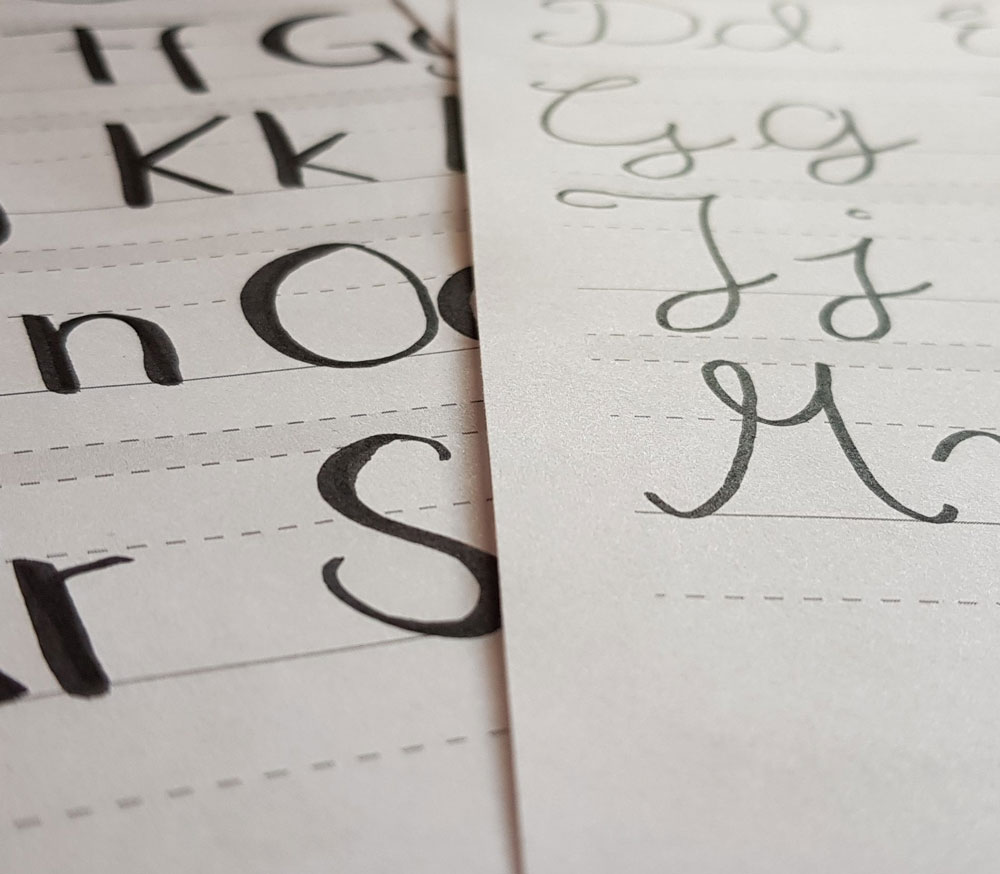 Ff Gg
Kk
n O
r S
Dd
Gg
Jj
M